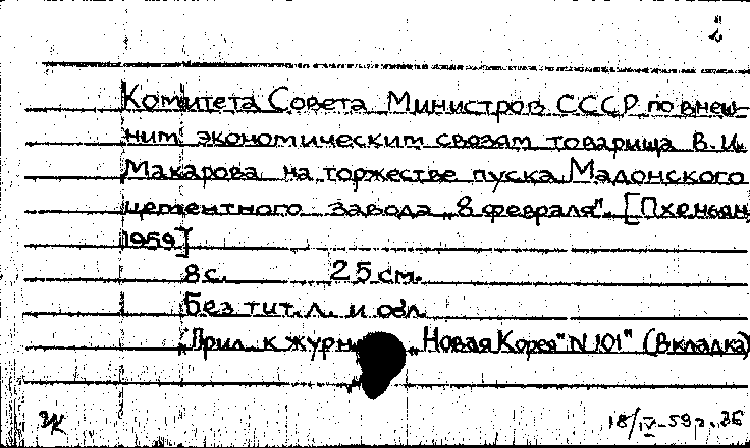 2
Комитета Совета Министров СССР по внеш-
ним экономическим связям товарища В.И.
Макарова на торжестве пуска Мадонского
цементного завода „8 февраля". [Пхеньян,
1959]
8 с. 25 см.
Без тит. л. и обл.
Прил. к журн „Новая Корея" N 101" (Вкладка)
18/IV-59г.